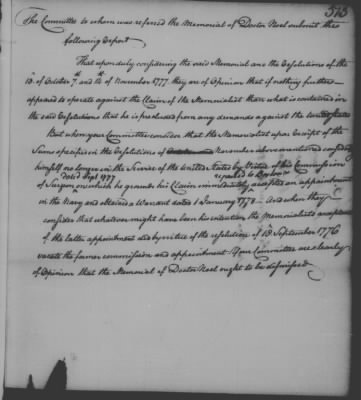 513
The Committee to whom was referred the Memorial of Doctor Noel submit the
following Report
That upon duly considering the said Memorial and the Resolutions of the
of October & of November 1777 they are of Opinion that if nothing further
appeared to operate against the Claim of the Memorialist than what is contained in
the said Resolutions that he is precluded from any demands against the United States
But when your Committee consider that the Memorialist upon receipt of the
Sums specified in the Resolutions of November above mentioned
himself no longer in the Service of the United States by Virtue of his Commission
dated Sept 1777 repaired to
of Surgeon on which he grounds his Claim immediately accepted an appointment
in the Navy and obtained a Warrant dated 2 January 1778 And when they
consider that whatever might have been his intention the Memorialists acceptance
of the latter appointment did by virtue of the resolution of 18 September 1776
vacate the former commission and appointment Your Committee are clearly
of Opinion that the Memorial of Doctor Noel ought to be dismissed